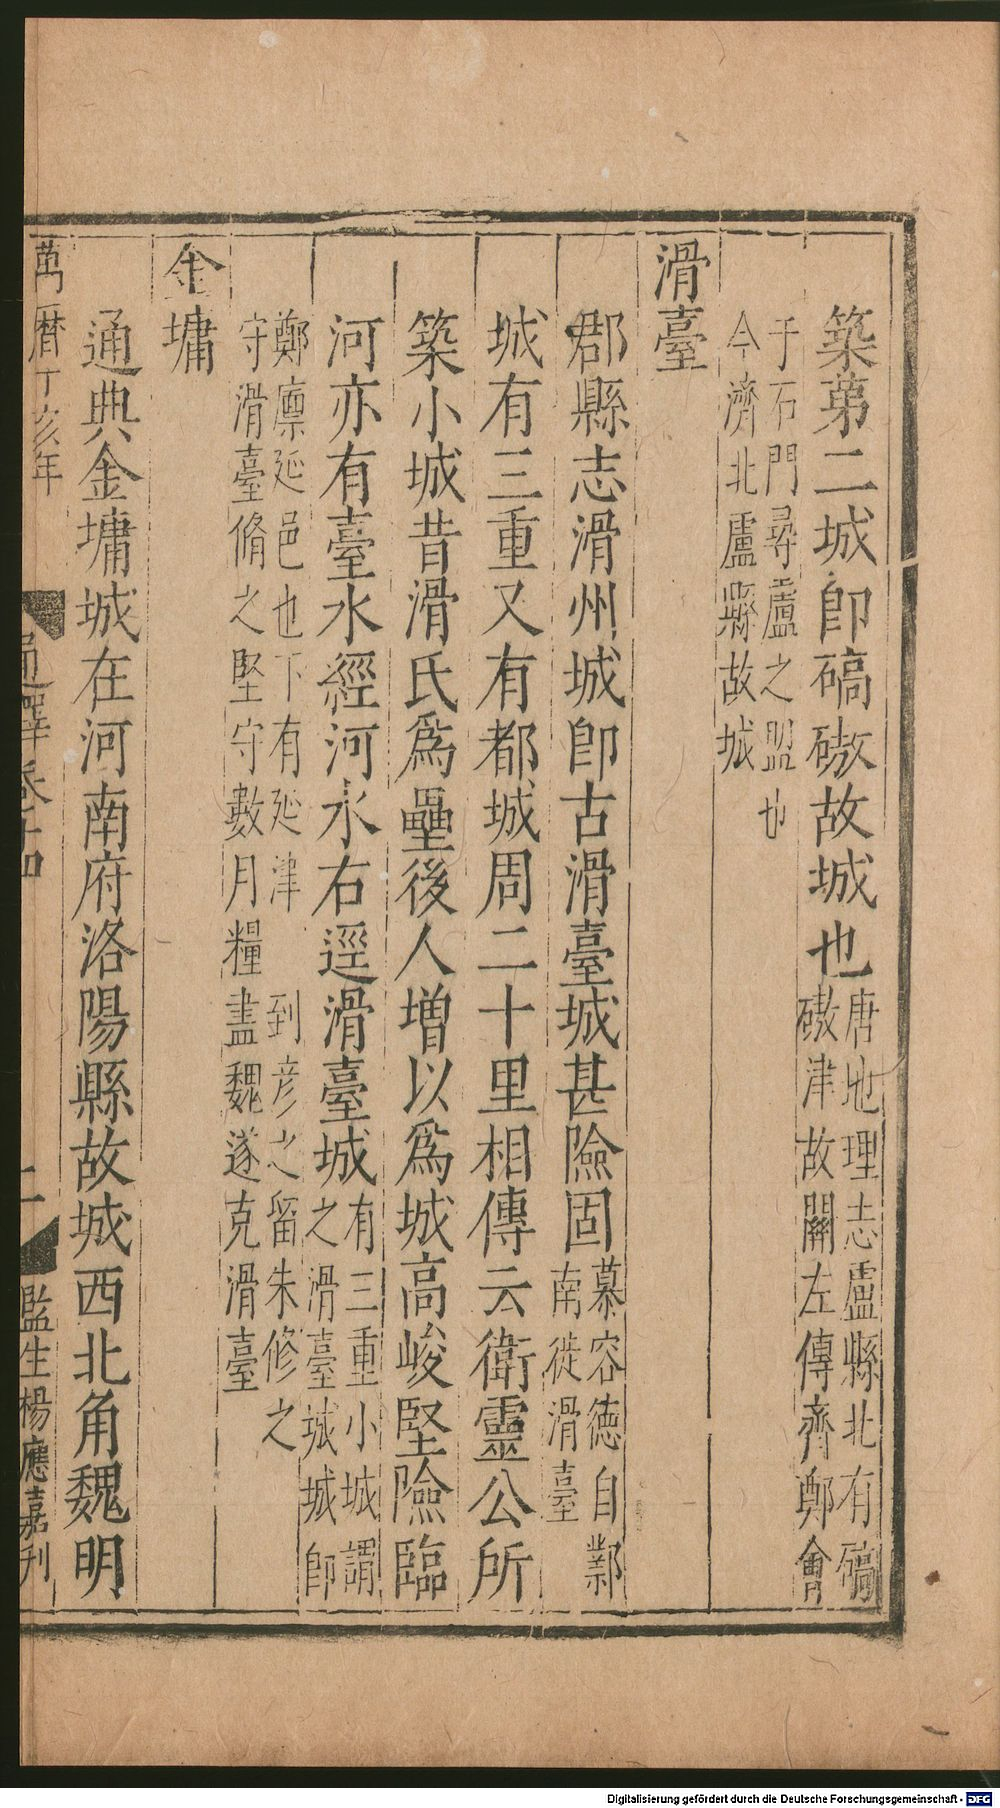 築苐二城卽碻磝故城也唐地理志盧縣北有碻
磝津故關左傳齊鄭會
于石門尋盧之盟也
今濟北盧縣故城
滑臺
郡縣志滑州城卽古滑臺城甚險固慕容徳自鄴
南徙滑臺
城有三重又有都城周二十里相傳云衛靈公所
築小城昔滑氏爲壘後人增以爲城高峻堅險臨
河亦有臺水經河水右逕滑臺城有三重小城謂
之滑臺城城卽
鄭廩延邑也下有延津 到彦之留朱修之
守滑臺脩之堅守數月糧盡魏遂克滑臺
金墉
通典金墉城在河南府洛陽縣故城西北角魏明
萬曆丁亥年
通釋卷十四
二
監生楊應嘉刋
Digitalisierung gefördert durch die Deutsche Forschungsgemeinschaft - DFG